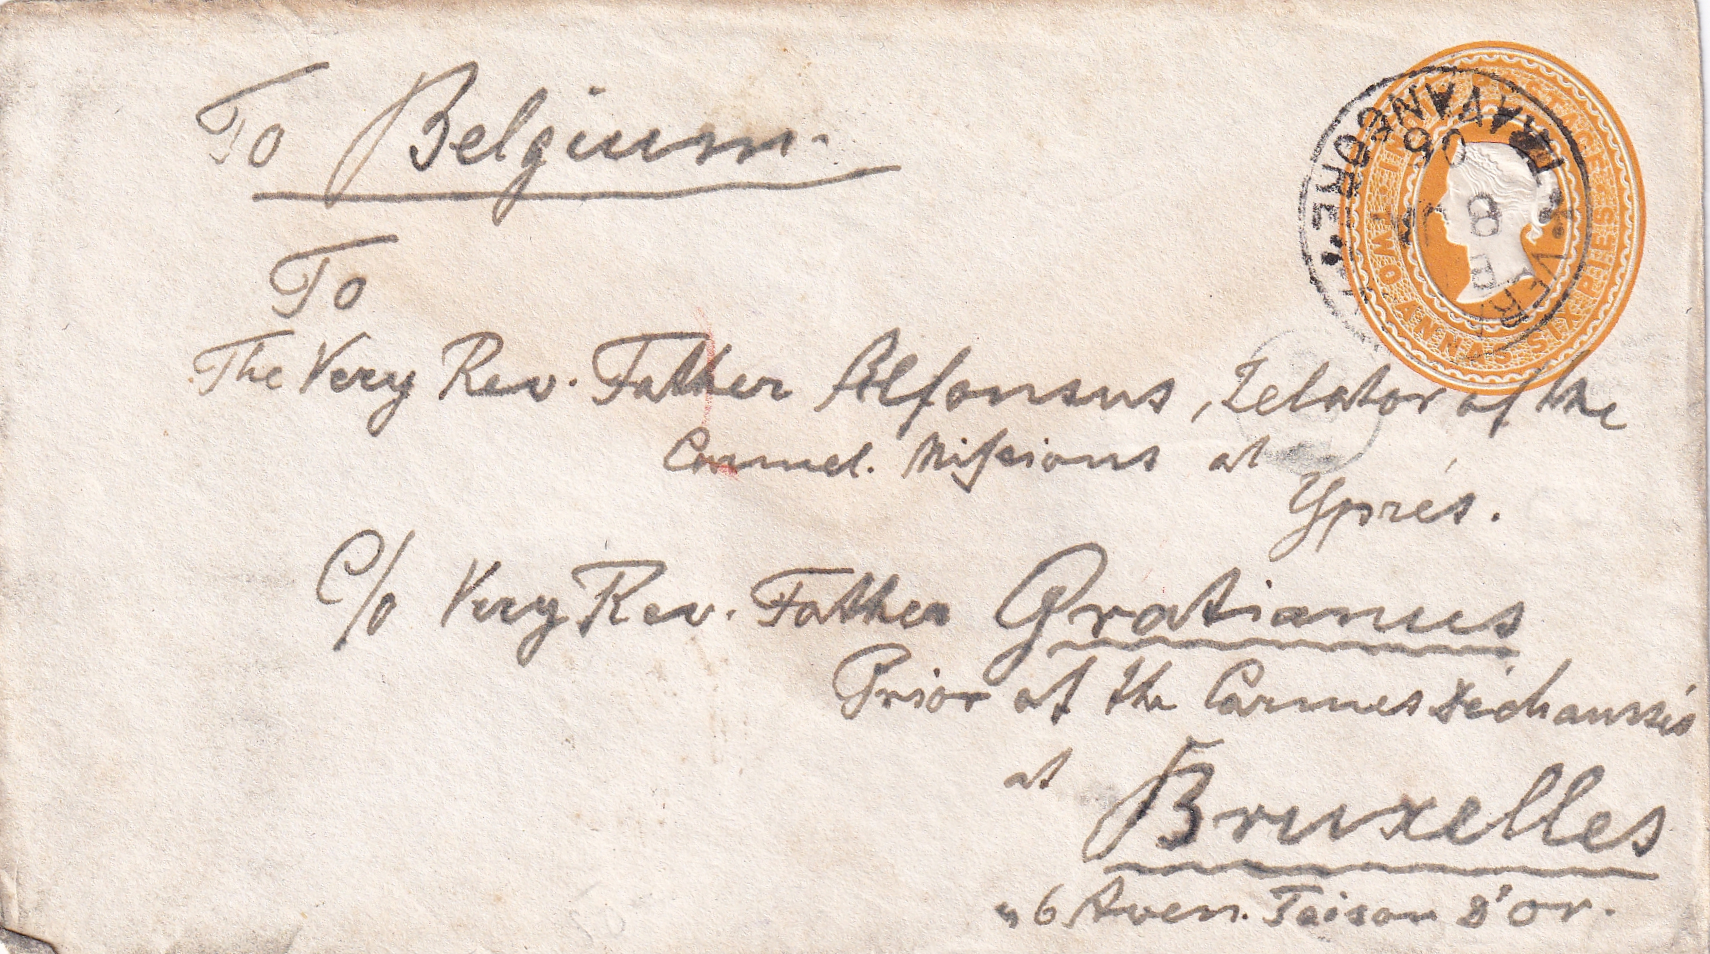 To Belgium.
TWO ANNAS SIX PIES
TRAVANCORE
To
The Very Rev. Father Alfonsus, Zelator of the
Carmel. Missions at
Yprés.
C/o Very Rev. Father Gratianus
Prior of the Carmes Déchaussés
at
Bruxelles
46 Aven. Toison d'or.